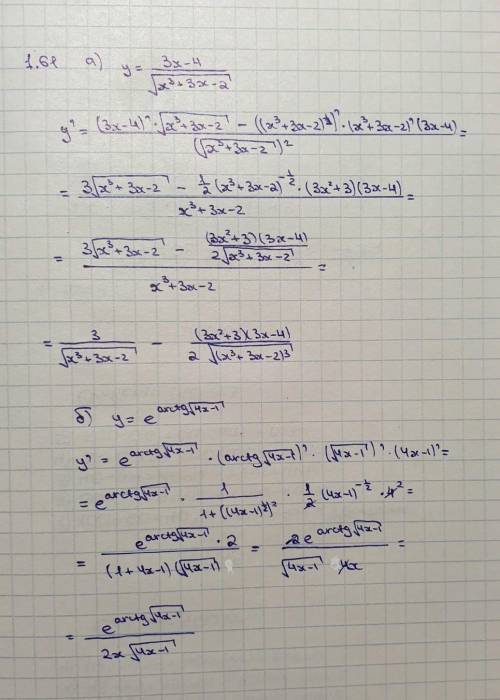 1.61 а) y = (3x-4)/√(x³+3x-2)
y' = ((3x-4)'·√(x³+3x-2) - ((x³+3x-2)^(1/2))'·(x³+3x-2)'(3x-4))/(√(x³+3x-2))² =
= (3√(x³+3x-2) - 1/2(x³+3x-2)^(-1/2)·(3x²+3)(3x-4))/(x³+3x-2) =
= (3√(x³+3x-2) - (3x²+3)(3x-4)/(2√(x³+3x-2)))/(x³+3x-2) =
= 3/√(x³+3x-2) - (3x²+3)(3x-4)/(2√((x³+3x-2)³))
б) y = e^(arctg√(4x-1))
y' = e^(arctg√(4x-1))·(arctg√(4x-1))'·(√(4x-1))'·(4x-1)' =
= e^(arctg√(4x-1))·1/(1+((4x-1)^(1/2))²)·1/2(4x-1)^(-1/2)·4² =
= (e^(arctg√(4x-1))·2)/((1+4x-1)(√(4x-1))) = (2e^(arctg√(4x-1)))/(√(4x-1) 4x) =
= e^(arctg√(4x-1))/(2x√(4x-1))